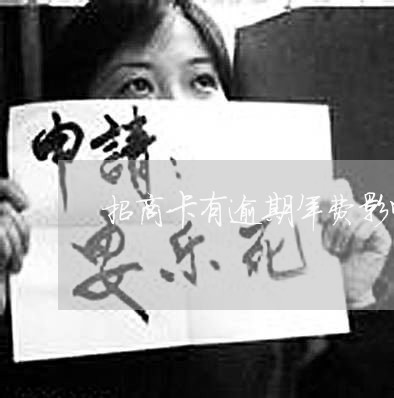 申請：
招商卡有逾期年费影
安乐死